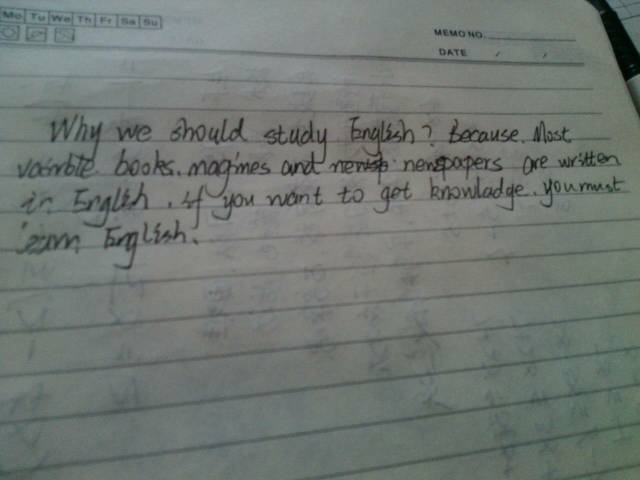 Mo Tu We Th Fr Sa Su
MEMO NO.
DATE / /
Why we should study English? Because. Most
books. magimes and newsp newspapers are written
in English. if you want to get knowladge. you must
learn English.